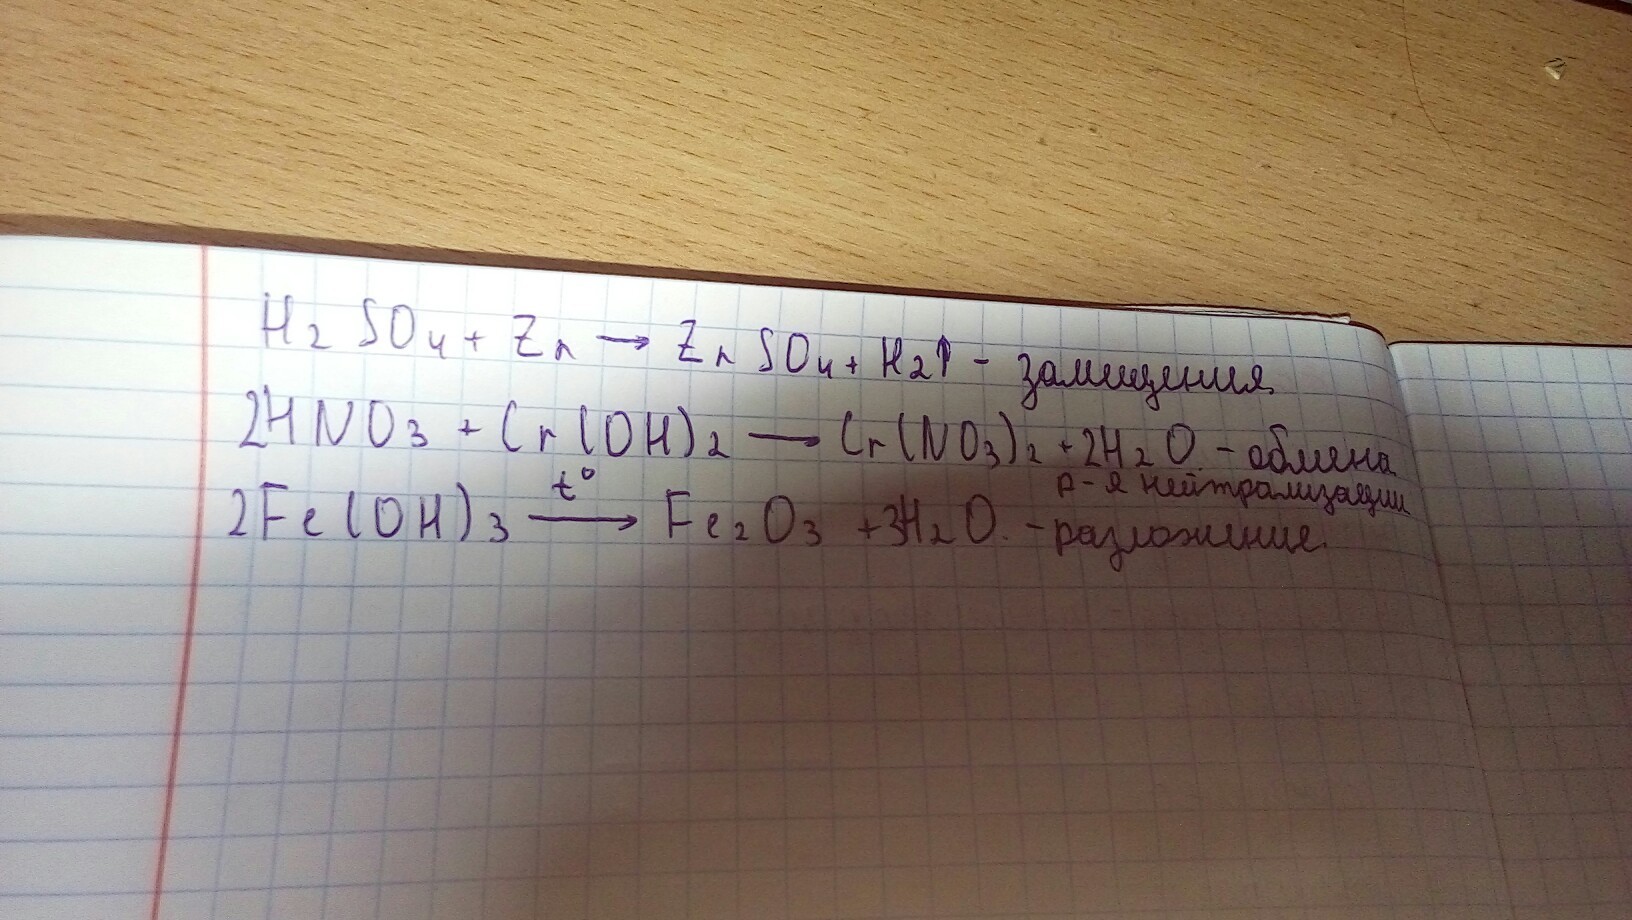 H2SO4 + Zn → ZnSO4 + H2↑ - замещения.
2HNO3 + Cr(OH)2 → Cr(NO3)2 + 2H2O. - обмена
р-я нейтрализации
t°
2Fe(OH)3 → Fe2O3 + 3H2O. - разложение.